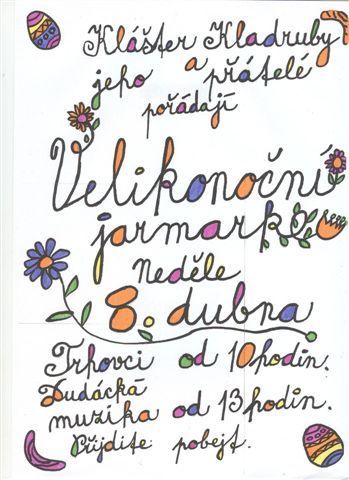 Klášter Kladruby
a
jeho přátelé
pořádají
Velikonoční
jarmark
Neděle
8. dubna
Trhovci od 10 hodin.
Dudácká
muzika od 13 hodin.
Přijdite pobejt.